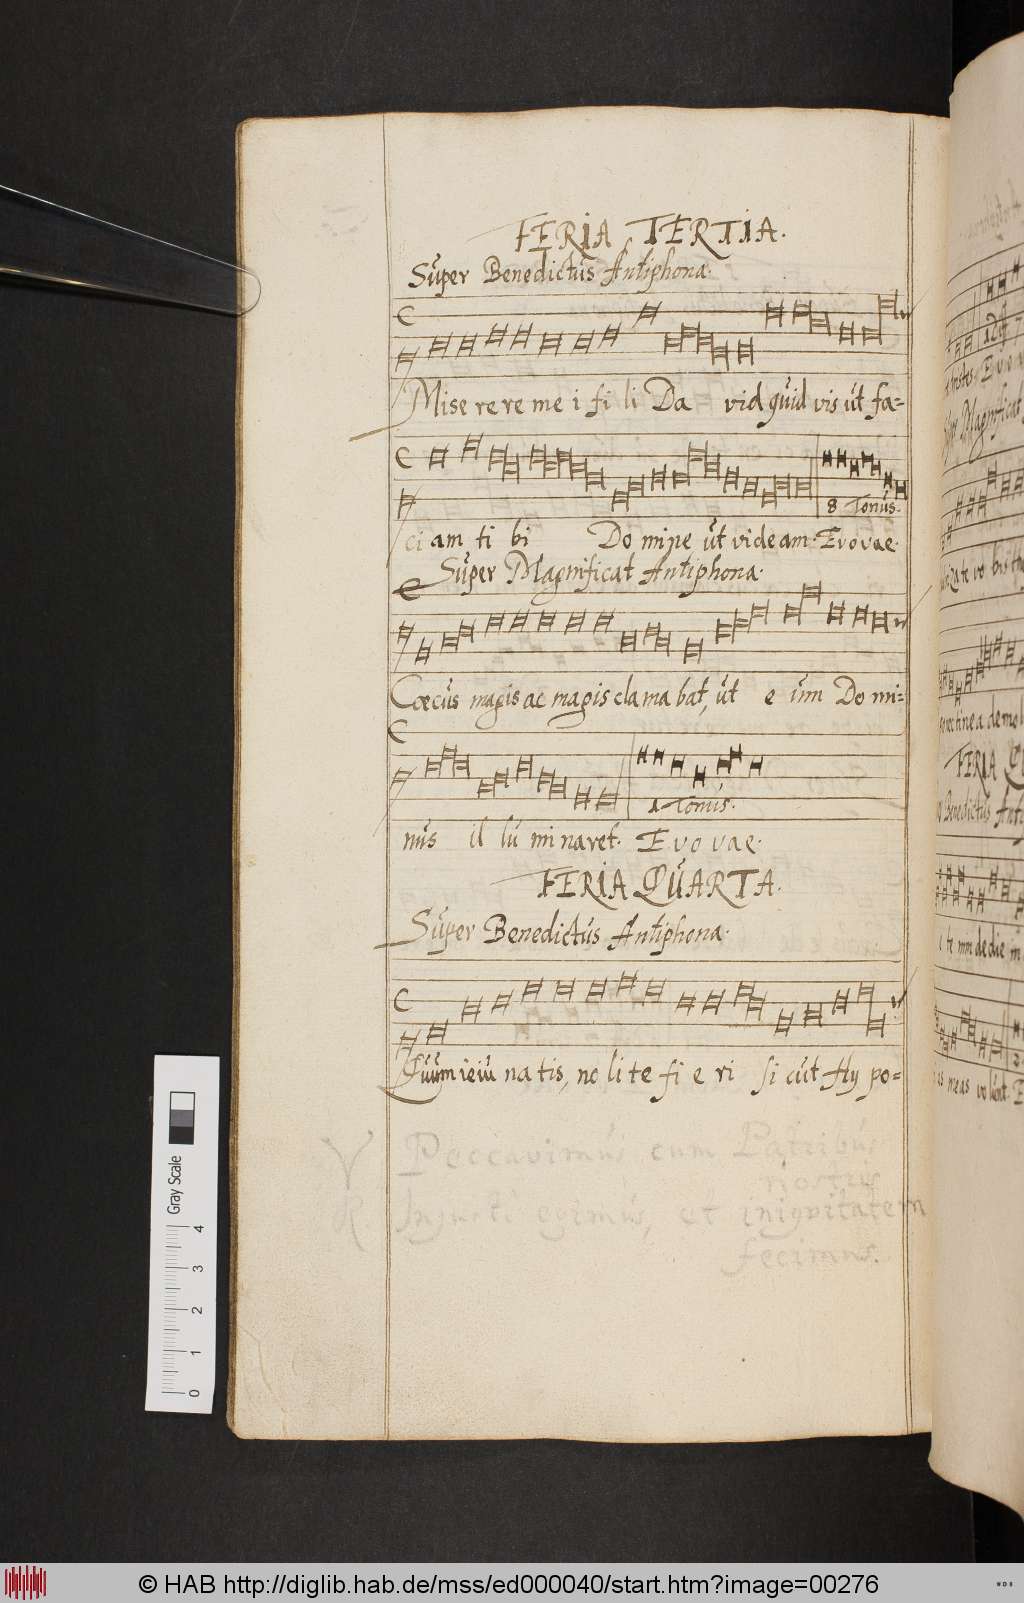 FERIA TERTIA.
Super Benedictus Antiphona.
Mise re re me i fi li Da vid quid vis ut fa-
ci am ti bi Do mine ut vide am. Evovae.
8 Tonus.
Super Magnificat Antiphona.
Coecus magis ac magis clama bat, ut e um Do mi-
nus il lu mi naret. E v o v a e.
1 Tonus.
FERIA QUARTA.
Super Benedictus Antiphona.
Quum ieiu na tis, no li te fi e ri si cut Hy po-
V Peccavimus cum Patribus
nostris
R Injusti egimus, et iniquitatem
fecimus.
Gray Scale
0 1 2 3 4
© HAB http://diglib.hab.de/mss/ed000040/start.htm?image=00276